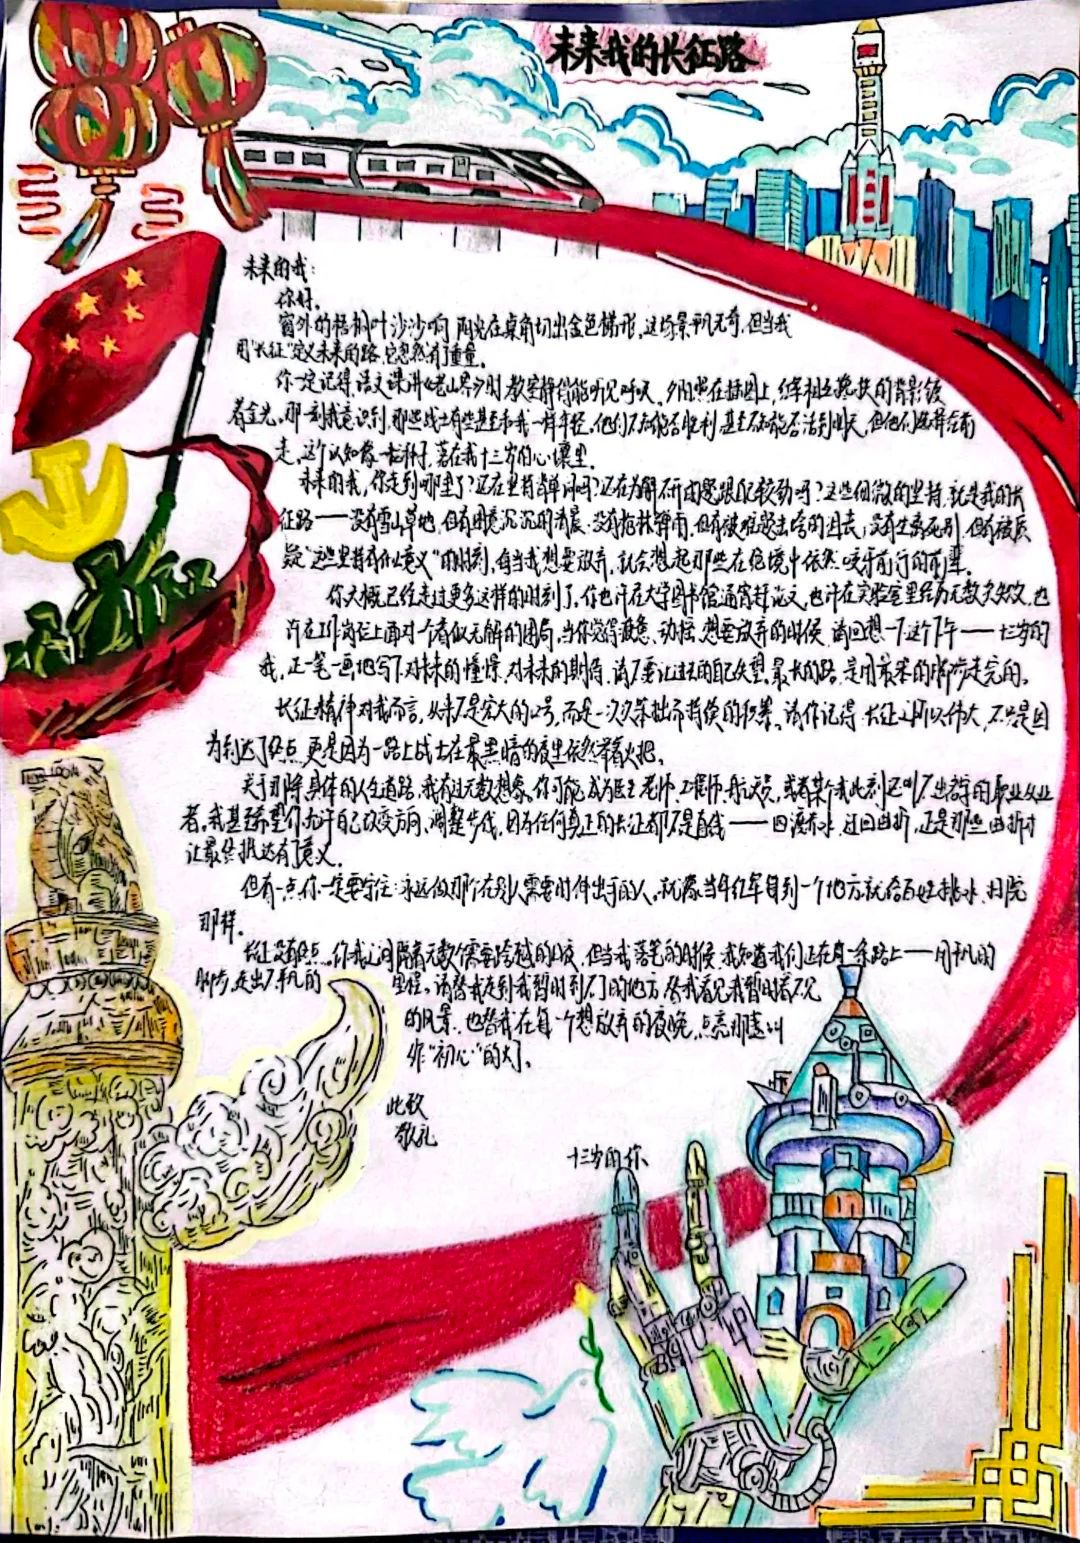 未来我的长征路
未来的我：
你好。
窗外的梧桐叶沙沙响，阳光在桌角切出金色梯形，这场景平凡无奇，但当我
用“长征”定义未来的路，它忽然有了重量。
你一定记得，语文课讲《老山界》时，教室静得能听见呼吸，夕阳照在插图上，红军相互搀扶的背影镀
着金光。那一刻我意识到，那些战士有些甚至和我一样年轻，他们不知能否胜利，甚至不知能否活到明天，但他们选择往前
走，这个认知像一粒种子，落在我十三岁的心壤里。
未来的我，你走到哪里了？还在坚持背单词吗？还在为解不开的题跟自己较劲吗？这些细微的坚持，就是我的长
征路——没有雪山草地，但有困意沉沉的清晨；没有枪林弹雨，但有被难题击垮的因去；没有生离死别，但有被质
疑“这些坚持有什么意义”的时刻，每当我想要放弃，就会想起那些在绝境中依然咬牙前行的前辈。
你大概已经走过更多这样的时刻了。你也许在大学图书馆通宵赶论文，也许在实验室里经历无数次失败，也
许在工作岗位上面对一个看似无解的困局，当你觉得疲惫、动摇，想要放弃的时候，请回想一下这个下午——十三岁的
我，正一笔一画地写下对未来的憧憬，对未来的期待，请不要让过去的自己失望。最长的路，是用最笨的脚步走完的。
长征精神对我而言，从来不是宏大的口号，而是一次次笨拙而持续的积累。请你记得，长征之所以伟大，不只是因
为到达了终点，更是因为一路上战士在最黑暗的夜里依然举着火把。
关于那条具体的人生道路，我有过无数想象。你可能成为医生、老师、工程师、航天员，或者某个我此刻还叫不出名字的职业从业
者。我甚至希望你允许自己改变方向，调整步伐，因为任何真正的长征都不是直线——四渡赤水，迂回曲折，正是那些曲折才
让最终抵达有了意义。
但有一点你一定要守住：永远做那个在别人需要时伸出手的人，就像当年红军每到一个地方就给百姓挑水、扫院
那样。
长征没有终点。你我之间隔着无数个需要跨越的山,但当我落笔的时候，我知道我们正在同一条路上——用平凡的
脚步，走出不凡的里程。请替我走到我暂时到不了的地方，替我看见我暂时看不见
的风景，也替我在每一个想放弃的夜晚，点亮那盏叫
作“初心”的灯。
此致
敬礼
十三岁的你